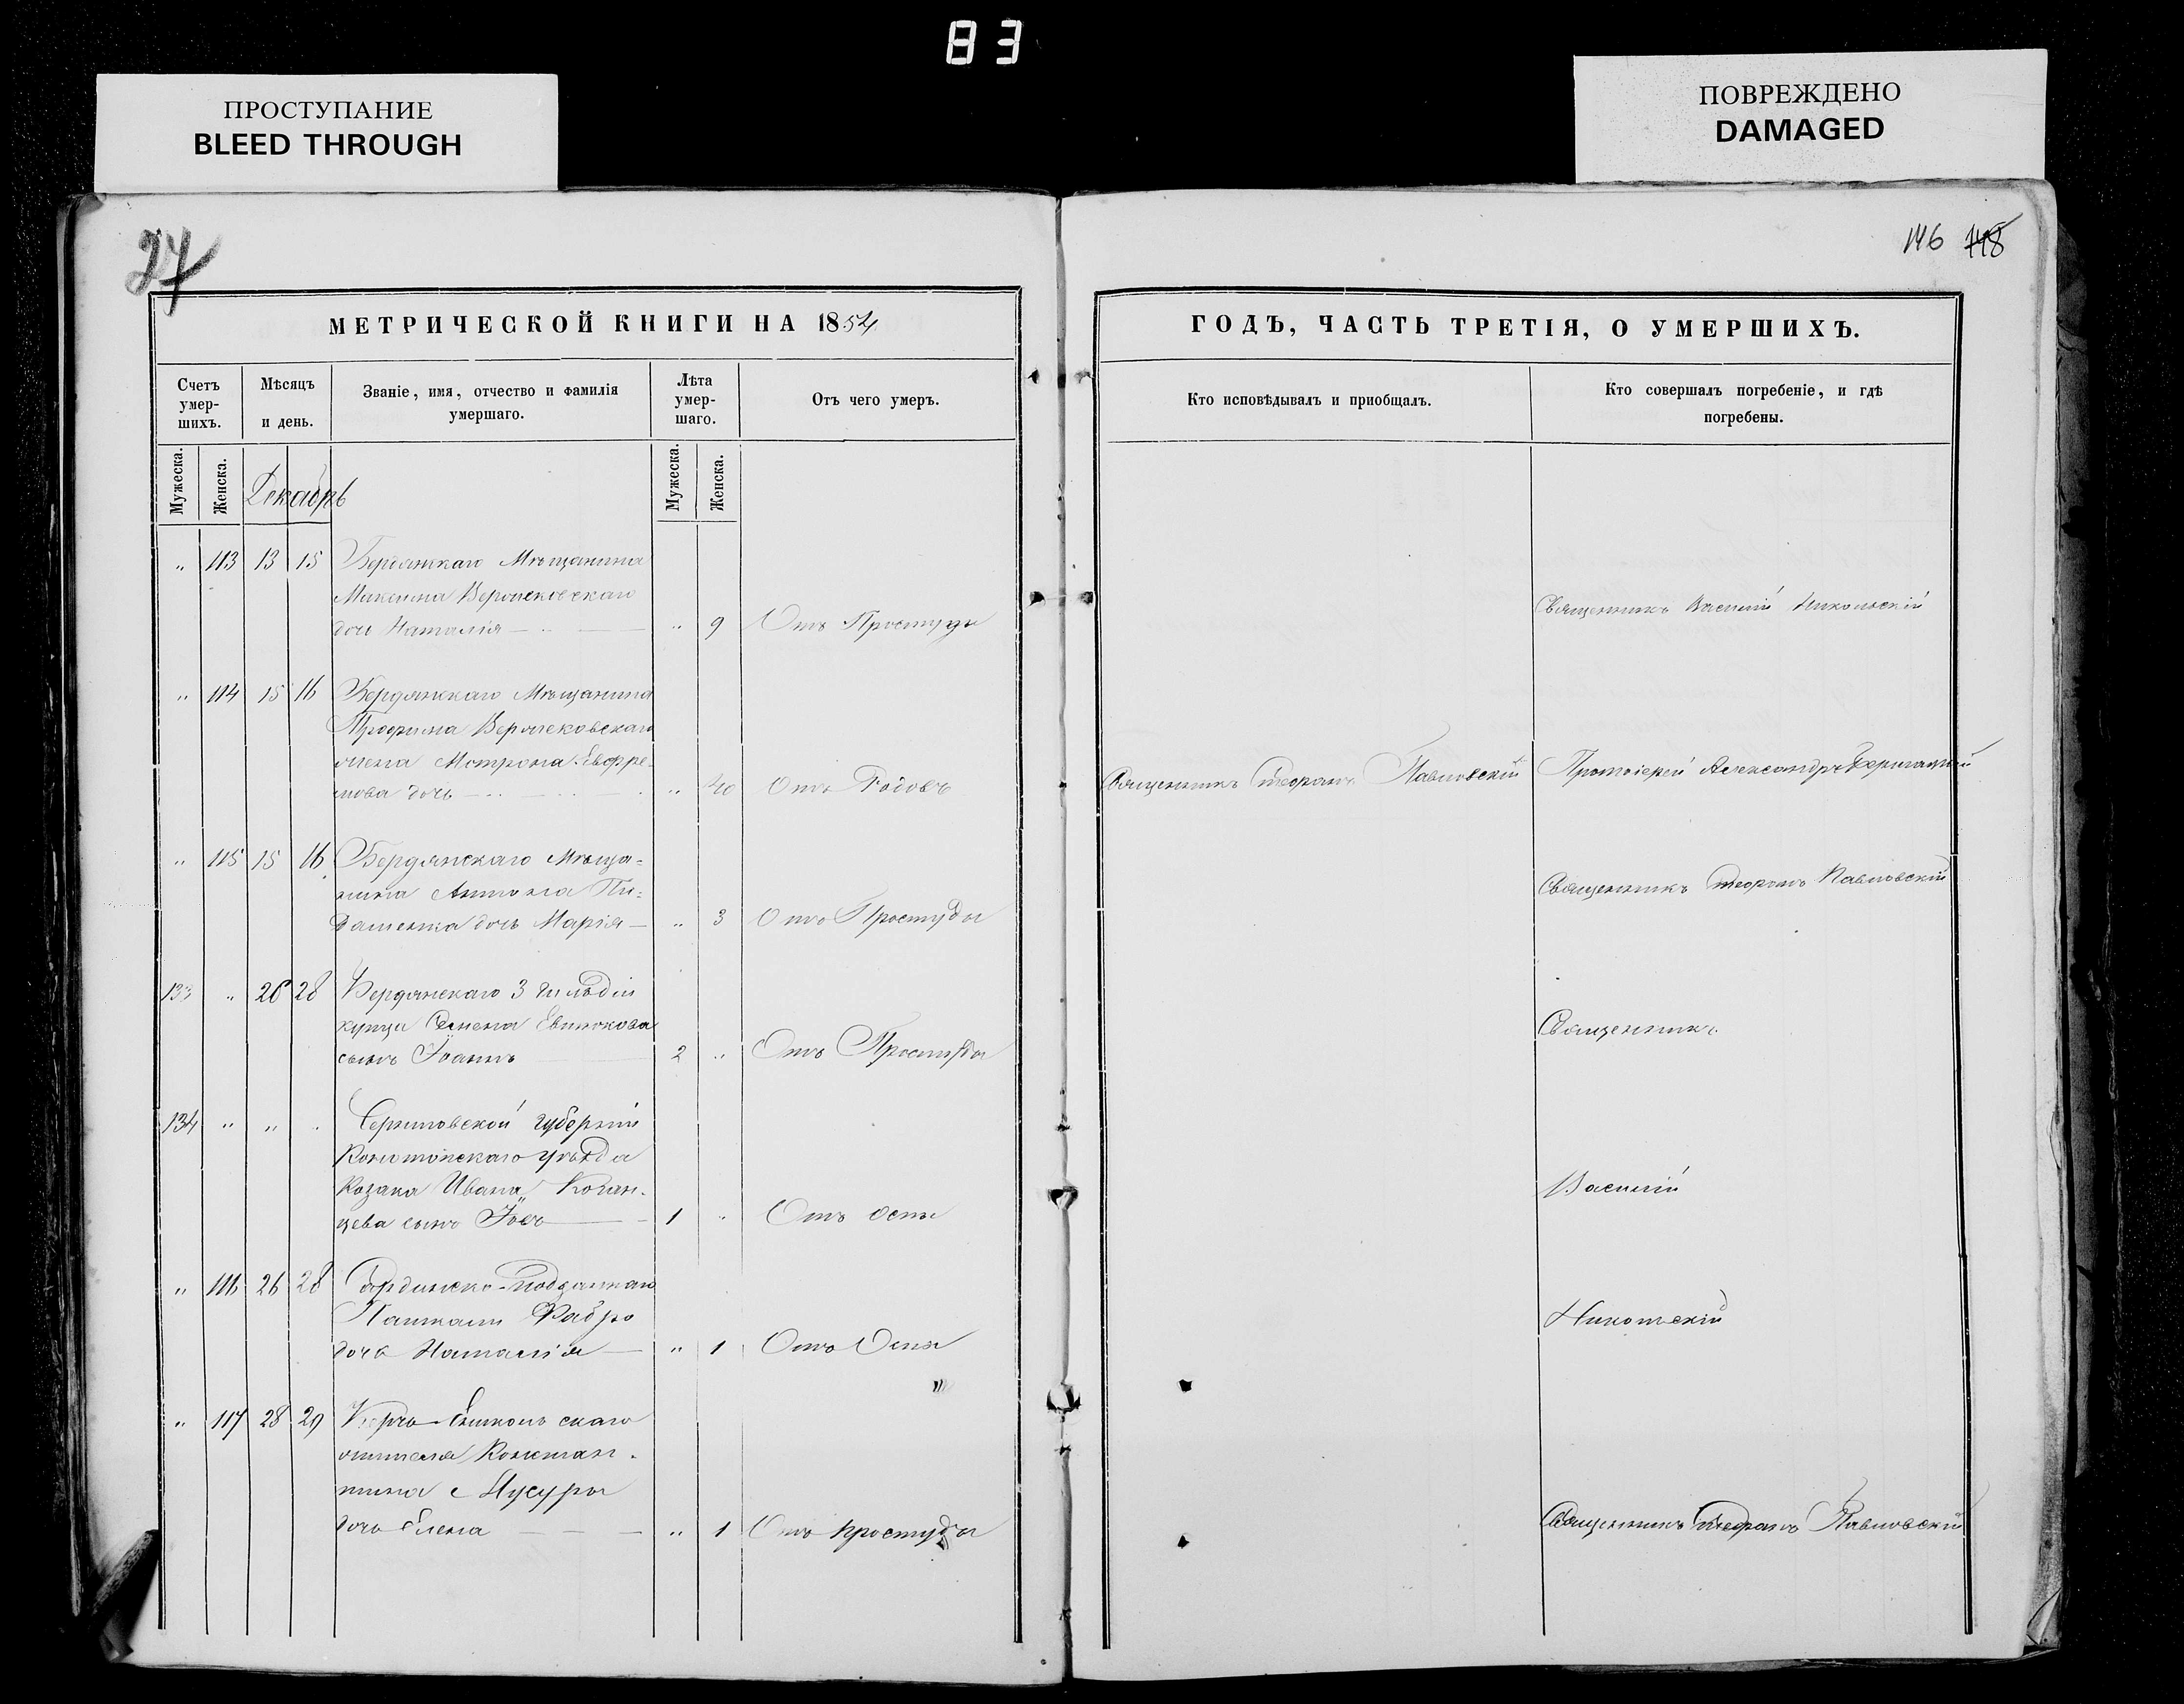 83
ПРОСТУПАНИЕ
BLEED THROUGH
ПОВРЕЖДЕНО
DAMAGED
27
146 148
МЕТРИЧЕСКОЙ КНИГИ НА 1854
Счетъ умер- шихъ.
Мѣсяцъ и день.
Званіе, имя, отчество и фамилія умершаго.
Лѣта умер- шаго.
Отъ чего умеръ.
Мужеска. Женска. Мужеска. Женска.
Декабрь
" 113 13 15 Бердянскаго Мѣщанина
Максима
дочь Наталія " 9 Отъ Простуды
" 114 15 16 Бердянскаго Мѣщанина
Трофима
жена Мотрона Ефре-
мова дочь " 40 Отъ Родовъ
" 115 15 16 Бердянскаго Мѣща-
нина Антона Пи-
дашенка дочь Марія " 3 Отъ Простуды
133 " 26 28 Бердянскаго 3 гильдіи
купца Семена
сынъ Іоаннъ 2 " Отъ Простуды
134 " " Черниговской губерніи
Конотопскаго уѣзда
Козака Ивана
цева сынъ 1 " Отъ Оспы
" 116 26 28 Сардинско-подданнаго
Фабро
дочь Наталія " 1 Отъ Оспы
" 117 28 29 Керчь-Еникольскаго
жителя Констан-
тина
дочь Елена " 1 Отъ простуды
ГОДЪ, ЧАСТЬ ТРЕТІЯ, О УМЕРШИХЪ.
Кто исповѣдывалъ и приобщалъ.
Кто совершалъ погребеніе, и гдѣ
погребены.
Священникъ Василій Никольскій
Священникъ Павловскій Протоіерей Александръ
Священникъ Павловскій
Священникъ
Василій
Никольскій
Священникъ Павловскій